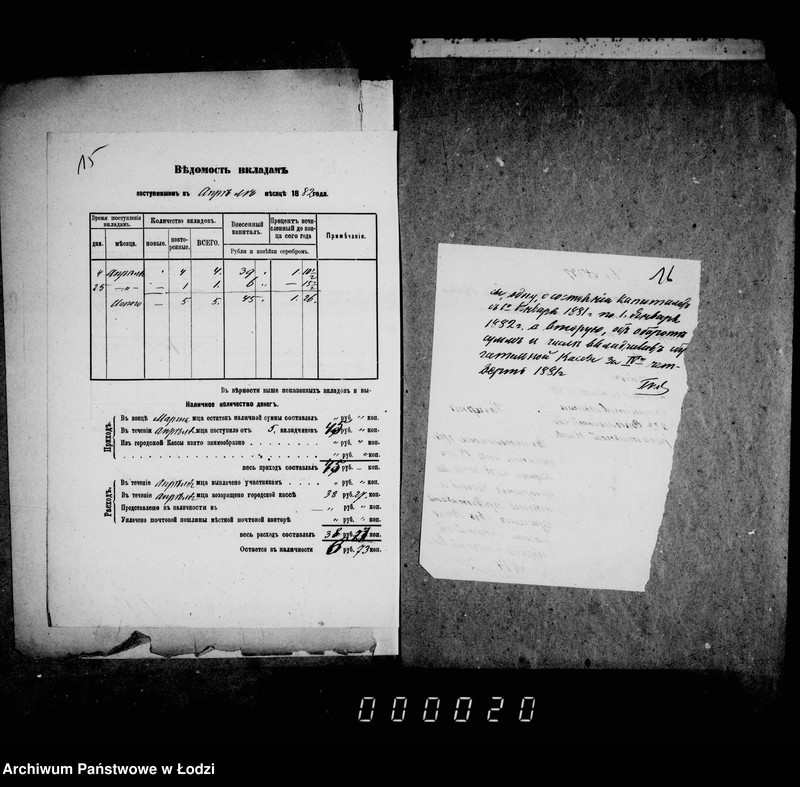 15
Вѣдомость вкладамъ
поступившимъ въ Апрѣлѣ мѣсяцѣ 1882 года.
Время поступленія вкладамъ.
Количество вкладовъ.
Внесенный капиталъ.
Процентъ исчисленный до конца сего года
Примѣчанія.
дни. мѣсяца. новые. повторенные. ВСЕГО.
Рубли и копѣйки серебромъ.
4 Апрѣля " 4 4. 39 " 1.
25 —"— — 1 1. 6 " —
Итого — 5 5. 45 " 1. 26.
Въ вѣрности выше показанныхъ вкладовъ и вы-
Наличное количество денегъ.
Приходъ.
Въ концѣ Марта мца остатокъ наличной суммы составлялъ " руб. " коп.
Въ теченіи Апрѣля мца поступило отъ 5. вкладчиковъ 45 руб. " коп.
Изъ городской Кассы взято заимообразно " руб. " коп.
" руб. " коп.
весь приходъ составлялъ 45 руб. — коп.
Расходъ.
Въ теченіе Апрѣля мца выплачено участникамъ " руб. " коп.
Въ теченіе Апрѣля мца возвращено городской кассѣ 38 руб. 27 коп.
Представлено въ наличности въ — " руб. " коп.
Уплачено почтовой пошлины мѣстной почтовой конторѣ " руб. " коп.
весь расходъ составлялъ 38 руб. 27 коп.
Остается въ наличности 6 руб. 73 коп.
16
одну, о состояніи капиталовъ
съ 1го Января 1881 г. по 1. Января
1882 г. а вторую, объ оборотѣ
суммъ и числѣ вкладчиковъ сбе
гательной Кассы за IVю чет-
верть 1881 г
000020
Archiwum Państwowe w Łodzi